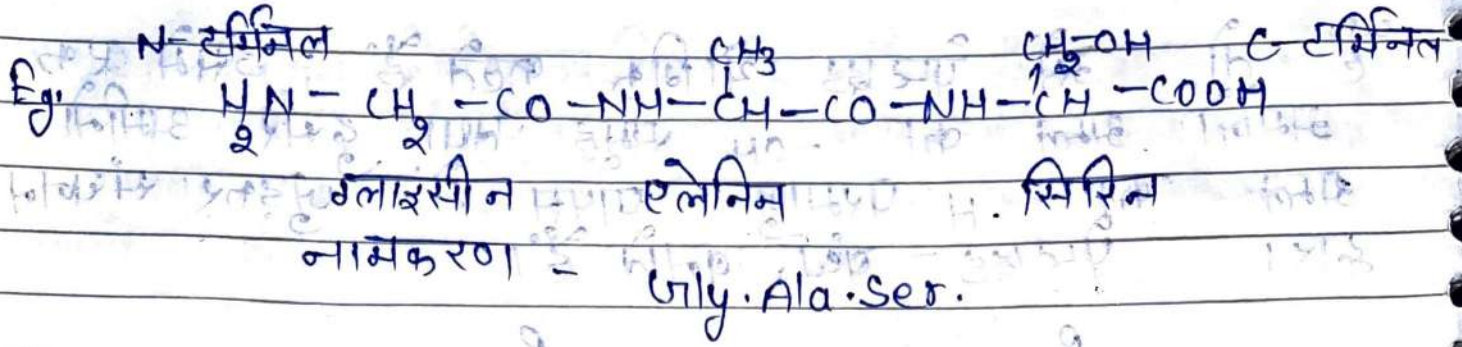 N-टर्मिनल CH3 CH2-OH C-टर्मिनल
Eg. H2N - CH2 - CO - NH - CH - CO - NH - CH - COOH
ग्लाइसीन - एलेनिन . सिरिन
नामकरण - Gly. Ala. Ser.